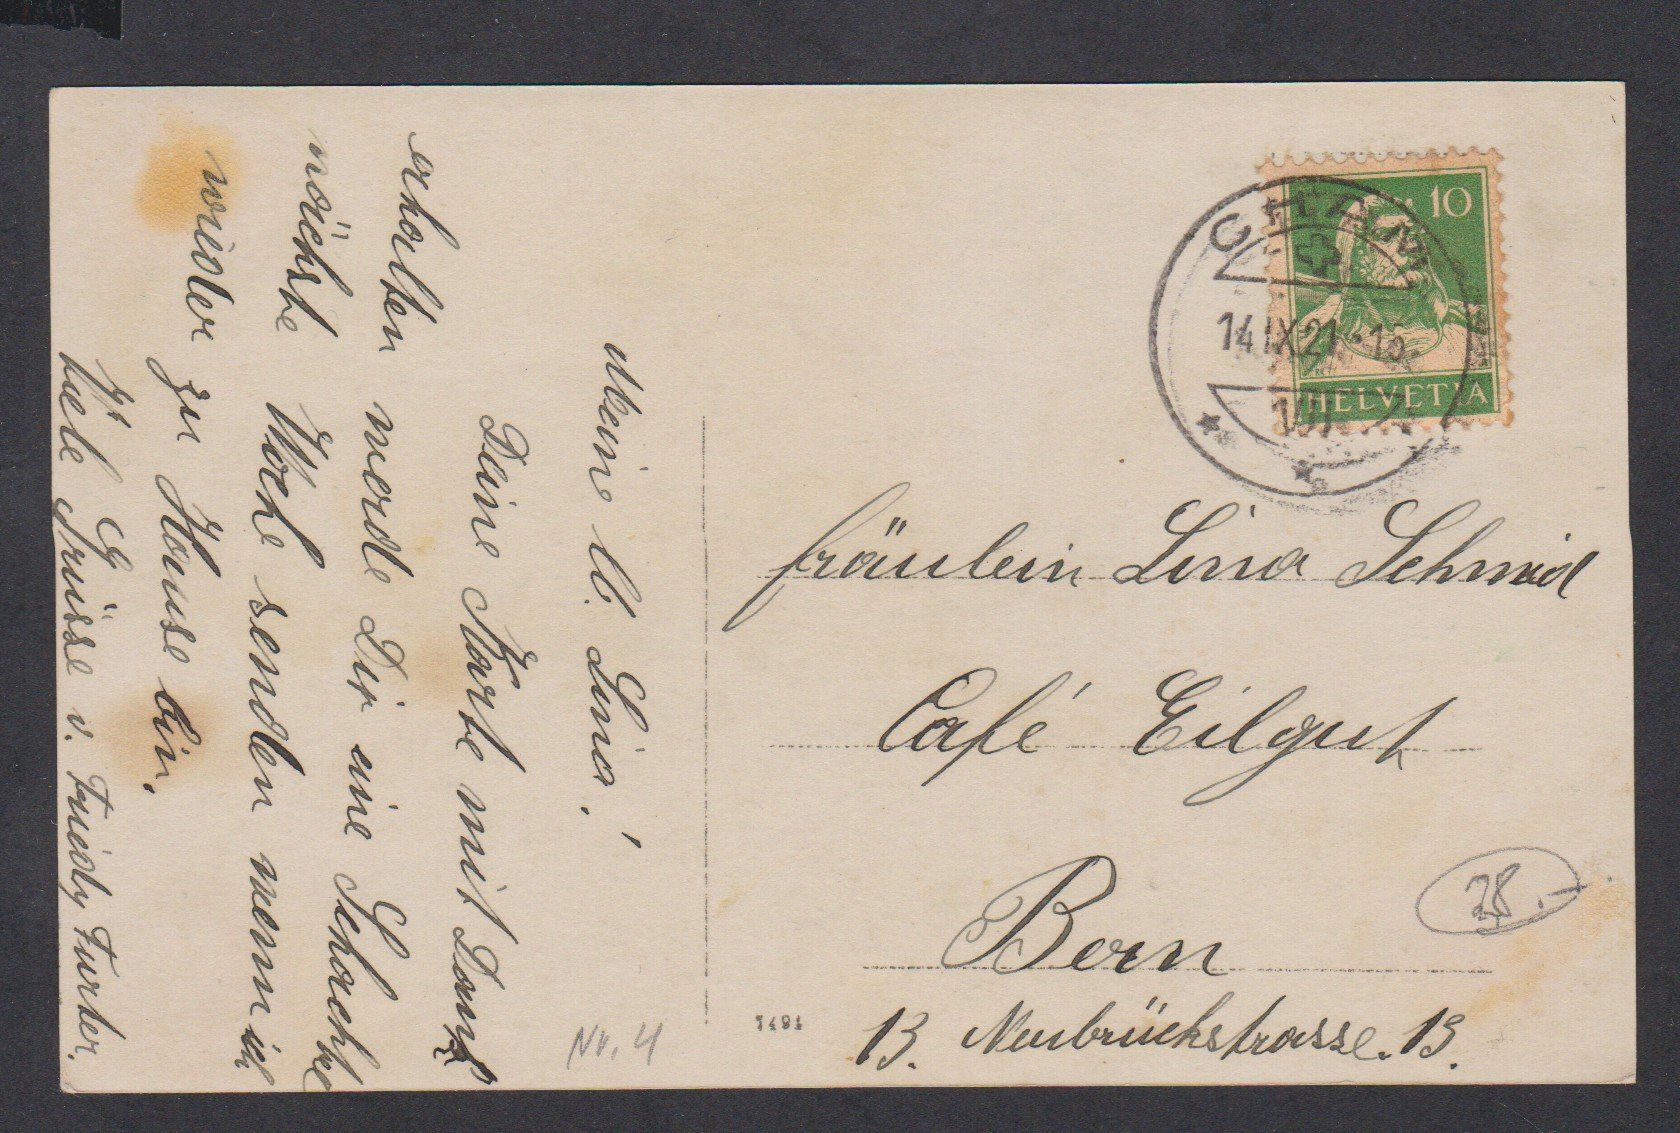 Meine lb. Lina!
Deine Karte mit Dank
erhalten werde Dir eine Schachte
nächste Woche senden wenn ich
wieder zu Hause bin.
Viele Grüsse v. Friedy Furter.
CHAM
14 IX 21 - 15
10
HELVETIA
Fräulein Lina Schmid
Café Eilgut
Bern
13. Neubrückstrasse. 13.
28.-
1491
Nr. 4